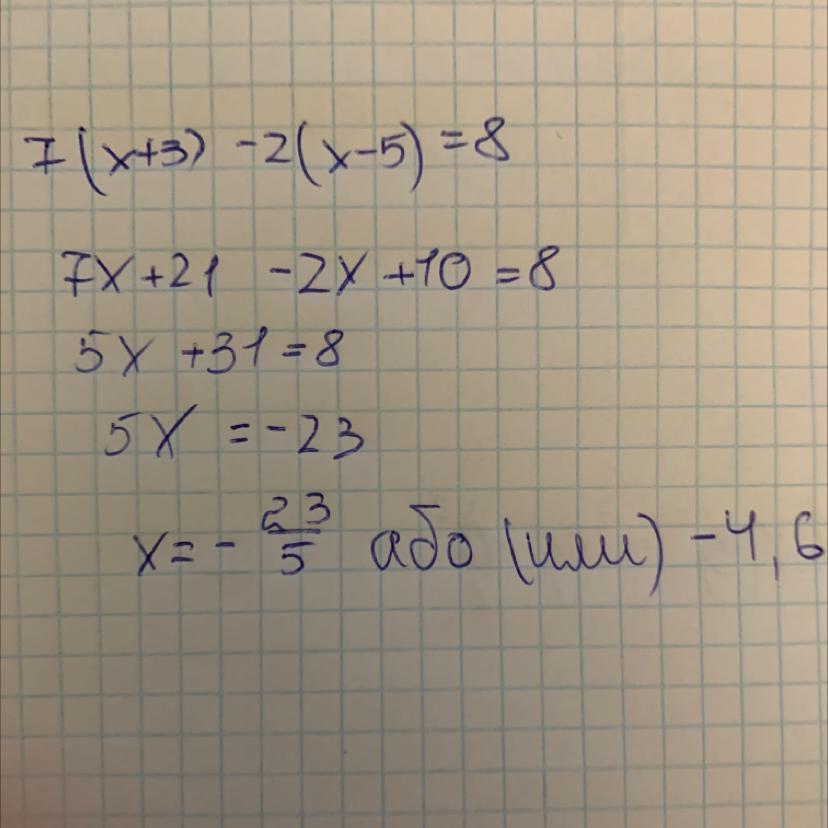 7(x+3) -2(x-5)=8
7x+21 -2x+10=8
5x+31=8
5x=-23
x=-23/5 або (или) -4,6